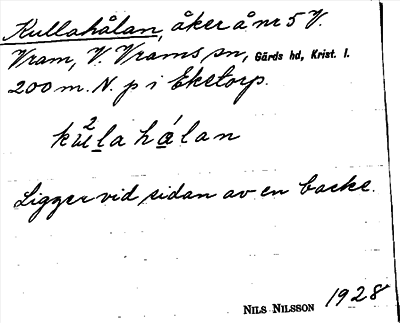 Kullahålan, åker å nr 5 V.
Vram, V. Vrams sn, Gärds hd, Krist. l.
200 m. N. p i Eketorp.
ku²lla hålan
Ligger vid sidan av en backe.
NILS NILSSON 1928